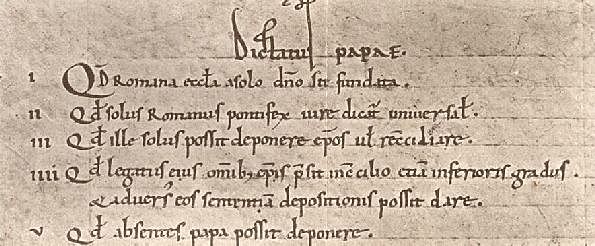 Dictatus papae.
I Qd Romana eccla a solo dno sit fundata.
II Qd solus Romanus pontifex iure dicat universal.
III Qd ille solus possit deponere epos ul reciliare.
IIII Qd legatus eius omib; epis psit in cilio etia inferioris gradus.
& adversus eos sententiā depositionis possit dare.
V Qd absentes papa possit deponere.